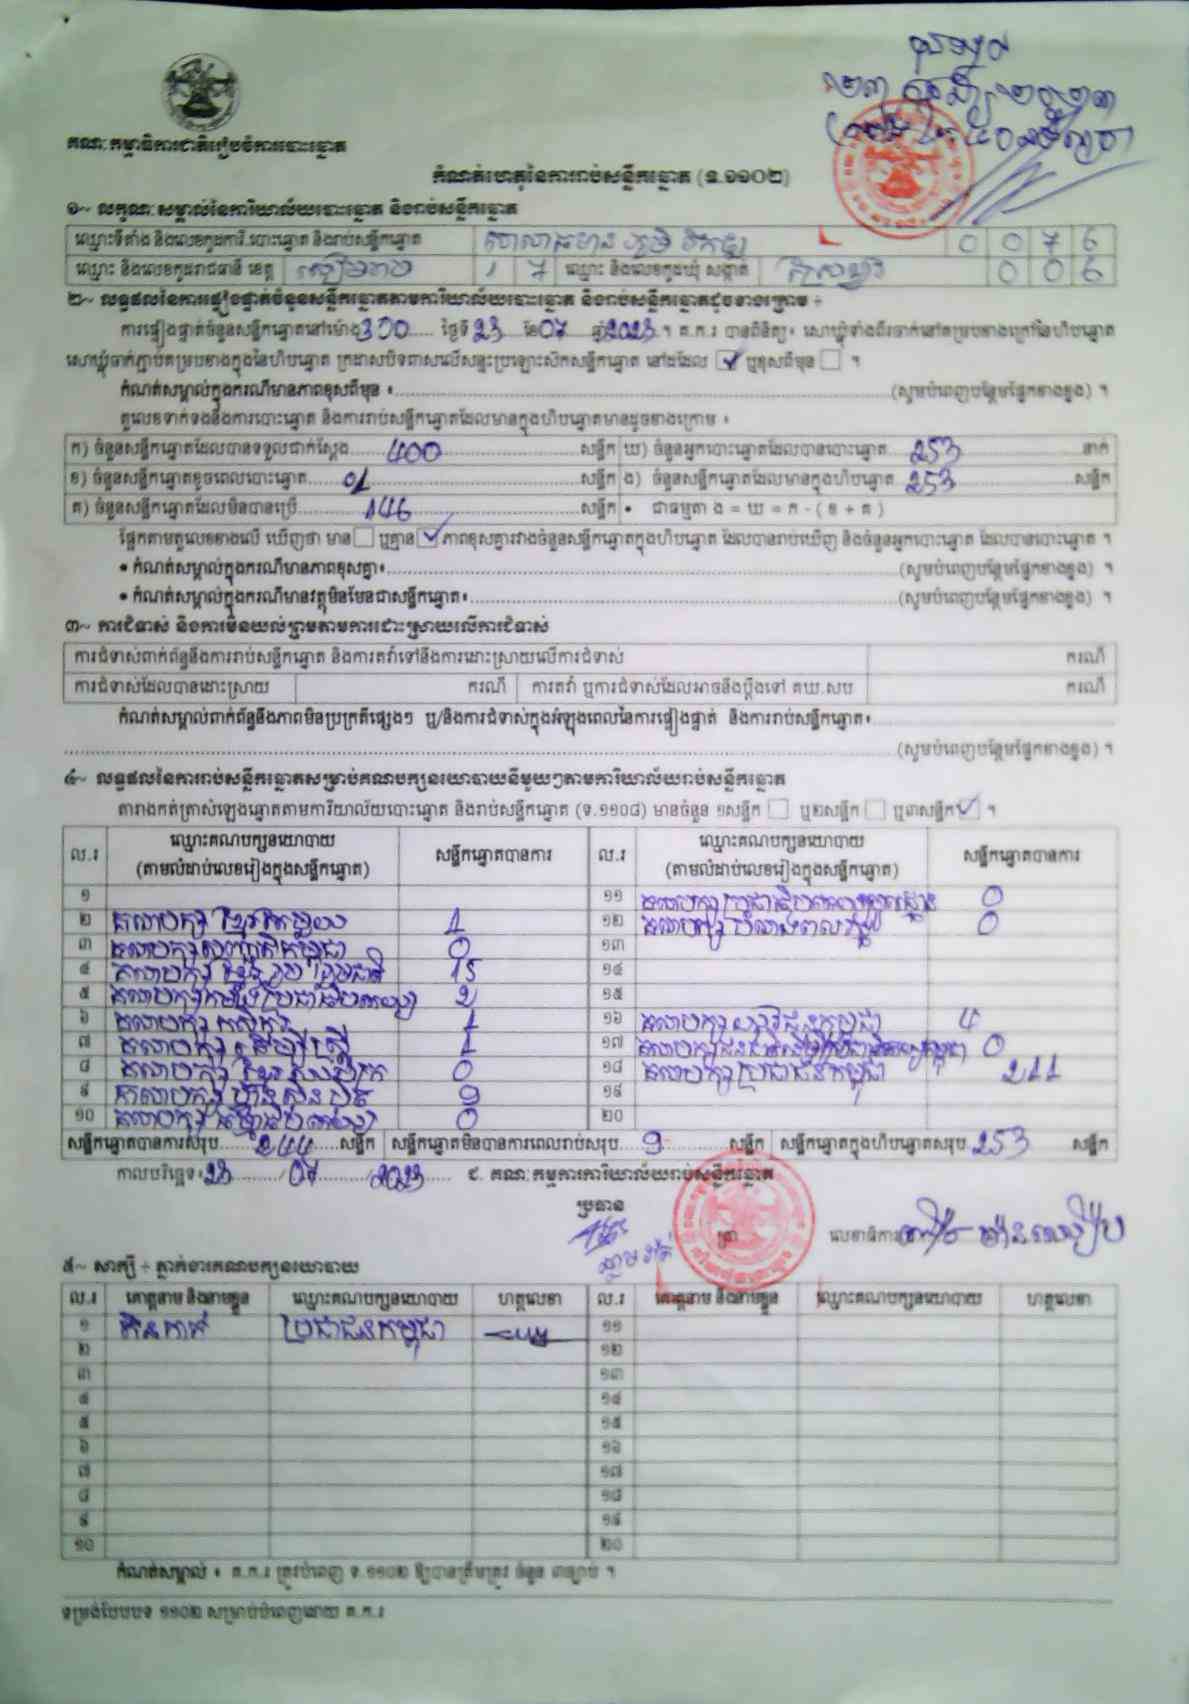 គណៈកម្មាធិការជាតិរៀបចំការបោះឆ្នោត
កំណត់ហេតុនៃការរាប់សន្លឹកឆ្នោត (ទ.១១០២)
១~ លក្ខណៈសម្គាល់នៃការិយាល័យបោះឆ្នោត និងរាប់សន្លឹកឆ្នោត
ឈ្មោះទីតាំង និងលេខកូដការិ.បោះឆ្នោត និងរាប់សន្លឹកឆ្នោត 0 0 7 6
ឈ្មោះ និងលេខកូដរាជធានី ខេត្ត សៀមរាប 1 7 ឈ្មោះ និងលេខកូដឃុំ សង្កាត់ 0 0 6
២~ លទ្ធផលនៃការផ្ទៀងផ្ទាត់ចំនួនសន្លឹកឆ្នោតតាមការិយាល័យបោះឆ្នោត និងរាប់សន្លឹកឆ្នោតដូចខាងក្រោម ÷
ការផ្ទៀងផ្ទាត់ចំនួនសន្លឹកឆ្នោតនៅម៉ោង 300 ថ្ងៃទី 23 ខែ 07 ឆ្នាំ 2023 ។ គ.ក.រ បានពិនិត្យ៖ សោឃ្លុំទាំងពីរចាក់នៅគម្របខាងក្រៅនៃហិបឆ្នោត
សោឃ្លុំចាក់ភ្ជាប់គម្របខាងក្នុងនៃហិបឆ្នោត ក្រដាសបិទពាសលើសន្ទះប្រឡោះសិកសន្លឹកឆ្នោត នៅដដែល ✓ ឬខុសពីមុន ។
កំណត់សម្គាល់ក្នុងករណីមានភាពខុសពីមុន ៖ (សូមបំពេញបន្ថែមផ្នែកខាងខ្នង) ។
តួលេខទាក់ទងនឹងការបោះឆ្នោត និងការរាប់សន្លឹកឆ្នោតដែលមានក្នុងហិបឆ្នោតមានដូចខាងក្រោម ៖
ក) ចំនួនសន្លឹកឆ្នោតដែលបានទទួលជាក់ស្តែង 400 សន្លឹក ឃ) ចំនួនអ្នកបោះឆ្នោតដែលបានបោះឆ្នោត 253 នាក់
ខ) ចំនួនសន្លឹកឆ្នោតខូចពេលបោះឆ្នោត 01 សន្លឹក ង) ចំនួនសន្លឹកឆ្នោតដែលមានក្នុងហិបឆ្នោត 253 សន្លឹក
គ) ចំនួនសន្លឹកឆ្នោតដែលមិនបានប្រើ 146 សន្លឹក • ជាធម្មតា ង = ឃ = ក - ( ខ + គ )
ផ្អែកតាមតួលេខខាងលើ ឃើញថា មាន ឬគ្មាន ✓ ភាពខុសគ្នារវាងចំនួនសន្លឹកឆ្នោតក្នុងហិបឆ្នោត ដែលបានរាប់ឃើញ និងចំនួនអ្នកបោះឆ្នោត ដែលបានបោះឆ្នោត ។
• កំណត់សម្គាល់ក្នុងករណីមានភាពខុសគ្នា៖ (សូមបំពេញបន្ថែមផ្នែកខាងខ្នង) ។
• កំណត់សម្គាល់ក្នុងករណីមានវត្ថុមិនមែនជាសន្លឹកឆ្នោត៖ (សូមបំពេញបន្ថែមផ្នែកខាងខ្នង) ។
៣~ ការជំទាស់ និងការមិនយល់ព្រមតាមការដោះស្រាយលើការជំទាស់
ការជំទាស់ពាក់ព័ន្ធនឹងការរាប់សន្លឹកឆ្នោត និងការតវ៉ាទៅនឹងការដោះស្រាយលើការជំទាស់ ករណី
ការជំទាស់ដែលបានដោះស្រាយ ករណី ការតវ៉ា ឬការជំទាស់ដែលអាចនឹងប្តឹងទៅ គឃ.សប ករណី
កំណត់សម្គាល់ពាក់ព័ន្ធនឹងភាពមិនប្រក្រតីផ្សេងៗ ឬ/និងការជំទាស់ក្នុងអំឡុងពេលនៃការផ្ទៀងផ្ទាត់ និងការរាប់សន្លឹកឆ្នោត៖
(សូមបំពេញបន្ថែមផ្នែកខាងខ្នង) ។
៤~ លទ្ធផលនៃការរាប់សន្លឹកឆ្នោតសម្រាប់គណបក្សនយោបាយនីមួយៗតាមការិយាល័យរាប់សន្លឹកឆ្នោត
តារាងកត់ត្រាសំឡេងឆ្នោតតាមការិយាល័យបោះឆ្នោត និងរាប់សន្លឹកឆ្នោត (ទ.១១០៨) មានចំនួន ១សន្លឹក ឬ២សន្លឹក ឬ៣សន្លឹក ✓ ។
ល.រ ឈ្មោះគណបក្សនយោបាយ (តាមលំដាប់លេខរៀងក្នុងសន្លឹកឆ្នោត) សន្លឹកឆ្នោតបានការ ល.រ ឈ្មោះគណបក្សនយោបាយ (តាមលំដាប់លេខរៀងក្នុងសន្លឹកឆ្នោត) សន្លឹកឆ្នោតបានការ
១ ១១ គណបក្ស 0
២ គណបក្ស ខ្មែរ 1 ១២ គណបក្ស 0
៣ គណបក្ស កម្ពុជា 0 ១៣
៤ គណបក្ស ខ្មែររួបរួមជាតិ 15 ១៤
៥ គណបក្ស កម្លាំងប្រជាធិបតេយ្យ 2 ១៥
៦ គណបក្ស កសិករ 1 ១៦ គណបក្ស 4
៧ គណបក្ស ដើម្បីស្ត្រី 1 ១៧ គណបក្ស 0
៨ គណបក្ស 0 ១៨ គណបក្ស ប្រជាជនកម្ពុជា 211
៩ គណបក្ស ហ្វ៊ុនស៊ិនប៉ិច 9 ១៩
១០ គណបក្ស ធម្មាធិបតេយ្យ 0 ២០
សន្លឹកឆ្នោតបានការសរុប 244 សន្លឹក សន្លឹកឆ្នោតមិនបានការពេលរាប់សរុប 9 សន្លឹក សន្លឹកឆ្នោតក្នុងហិបឆ្នោតសរុប 253 សន្លឹក
កាលបរិច្ឆេទ៖ 23 / 07 / 2023 ជ. គណៈកម្មការការិយាល័យរាប់សន្លឹកឆ្នោត
ប្រធាន
ត្រា លេខាធិការ
៥~ សាក្សី ÷ ភ្នាក់ងារគណបក្សនយោបាយ
ល.រ គោត្តនាម និងនាមខ្លួន ឈ្មោះគណបក្សនយោបាយ ហត្ថលេខា ល.រ គោត្តនាម និងនាមខ្លួន ឈ្មោះគណបក្សនយោបាយ ហត្ថលេខា
១ ប្រជាជនកម្ពុជា ១១
២ ១២
៣ ១៣
៤ ១៤
៥ ១៥
៦ ១៦
៧ ១៧
៨ ១៨
៩ ១៩
១០ ២០
កំណត់សម្គាល់ ៖ គ.ក.រ ត្រូវបំពេញ ទ.១១០២ ឱ្យបានត្រឹមត្រូវ ចំនួន ៣ច្បាប់ ។
ទម្រង់បែបបទ ១១០២ សម្រាប់បំពេញដោយ គ.ក.រ